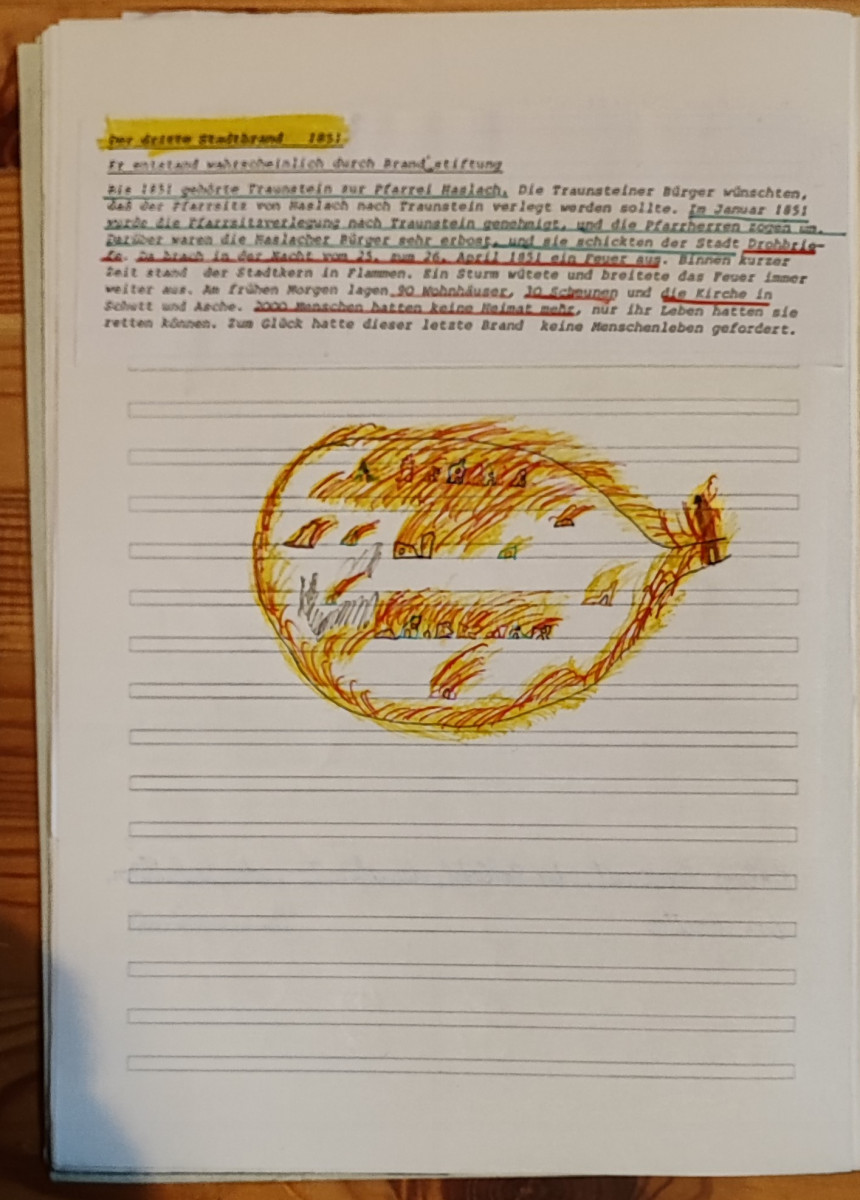 Der dritte Stadtbrand 1851
Er entstand wahrscheinlich durch Brand stiftung
Bis 1851 gehörte Traunstein zur Pfarrei Haslach. Die Traunsteiner Bürger wünschten,
daß der Pfarrsitz von Haslach nach Traunstein verlegt werden sollte. Im Januar 1851
wurde die Pfarrsitzverlegung nach Traunstein genehmigt, und die Pfarrherren zogen um.
Darüber waren die Haslacher Bürger sehr erbost, und sie schickten der Stadt Drohbrie-
fe. Da brach in der Nacht vom 25. zum 26. April 1851 ein Feuer aus. Binnen kurzer
Zeit stand der Stadtkern in Flammen. Ein Sturm wütete und breitete das Feuer immer
weiter aus. Am frühen Morgen lagen 90 Wohnhäuser, 30 Scheunen und die Kirche in
Schutt und Asche. 2000 Menschen hatten keine Heimat mehr, nur ihr Leben hatten sie
retten können. Zum Glück hatte dieser letzte Brand keine Menschenleben gefordert.